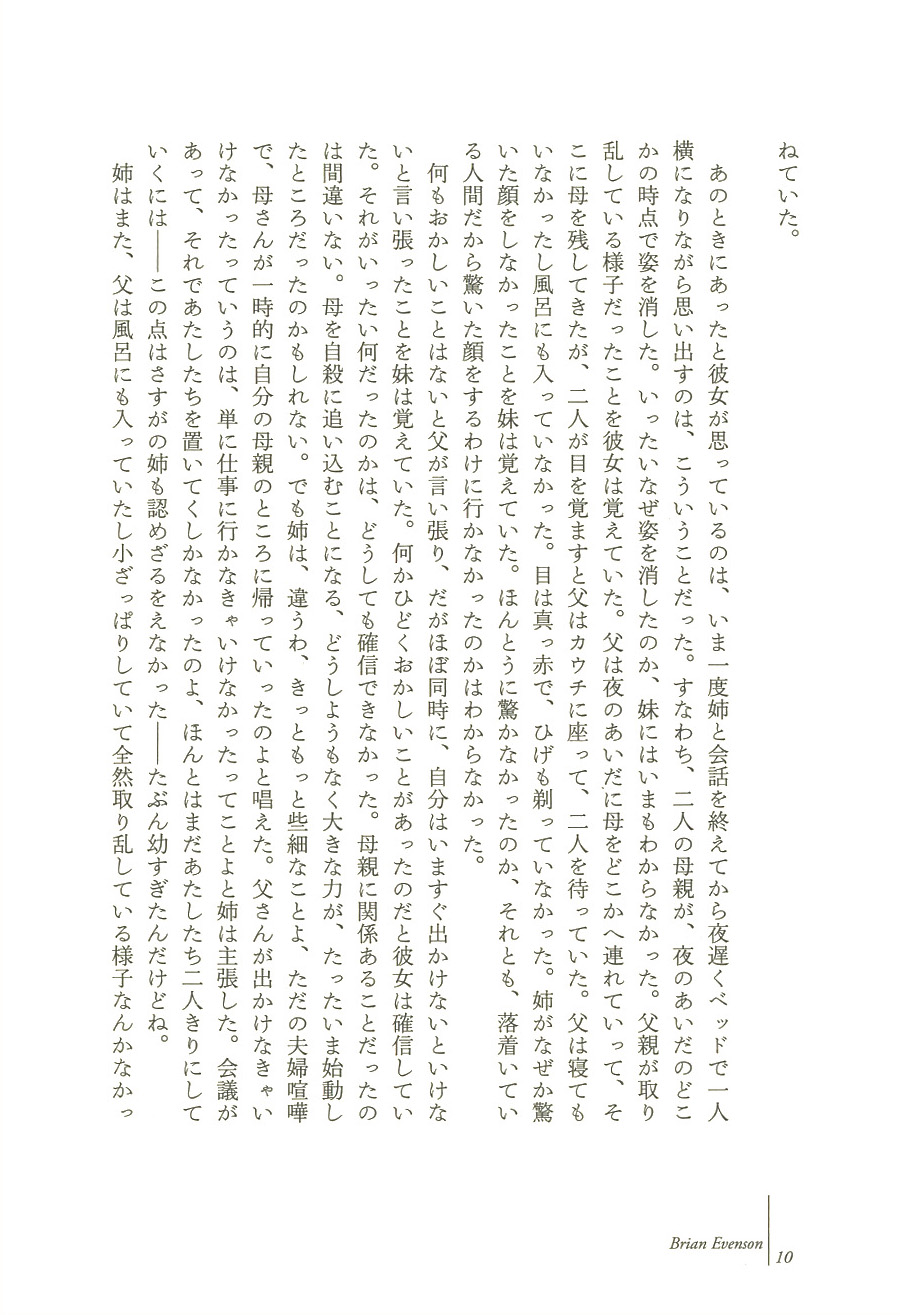 ねていた。
　あのときにあったと彼女が思っているのは、いま一度姉と会話を終えてから夜遅くベッドで一人
横になりながら思い出すのは、こういうことだった。すなわち、二人の母親が、夜のあいだのどこ
かの時点で姿を消した。いったいなぜ姿を消したのか、妹にはいまもわからなかった。父親が取り
乱している様子だったことを彼女は覚えていた。父は夜のあいだに母をどこかへ連れていって、そ
こに母を残してきたが、二人が目を覚ますと父はカウチに座って、二人を待っていた。父は寝ても
いなかったし風呂にも入っていなかった。目は真っ赤で、ひげも剃っていなかった。姉がなぜか驚
いた顔をしなかったことを妹は覚えていた。ほんとうに驚かなかったのか、それとも、落着いてい
る人間だから驚いた顔をするわけに行かなかったのかはわからなかった。
　何もおかしいことはないと父が言い張り、だがほぼ同時に、自分はいますぐ出かけないといけな
いと言い張ったことを妹は覚えていた。何かひどくおかしいことがあったのだと彼女は確信してい
た。それがいったい何だったのかは、どうしても確信できなかった。母親に関係あることだったの
は間違いない。母を自殺に追い込むことになる、どうしようもなく大きな力が、たったいま始動し
たところだったのかもしれない。でも姉は、違うわ、きっともっと些細なことよ、ただの夫婦喧嘩
で、母さんが一時的に自分の母親のところに帰っていったのよと唱えた。父さんが出かけなきゃい
けなかったっていうのは、単に仕事に行かなきゃいけなかったってことよと姉は主張した。会議が
あって、それであたしたちを置いてくしかなかったのよ、ほんとはまだあたしたち二人きりにして
いくには――この点はさすがの姉も認めざるをえなかった――たぶん幼すぎたんだけどね。
　姉はまた、父は風呂にも入っていたし小ざっぱりしていて全然取り乱している様子なんかなかっ
Brian Evenson
10